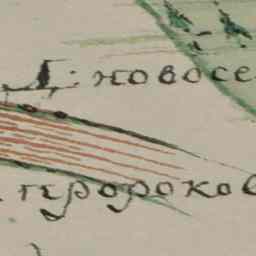 Д: новосе
пророков